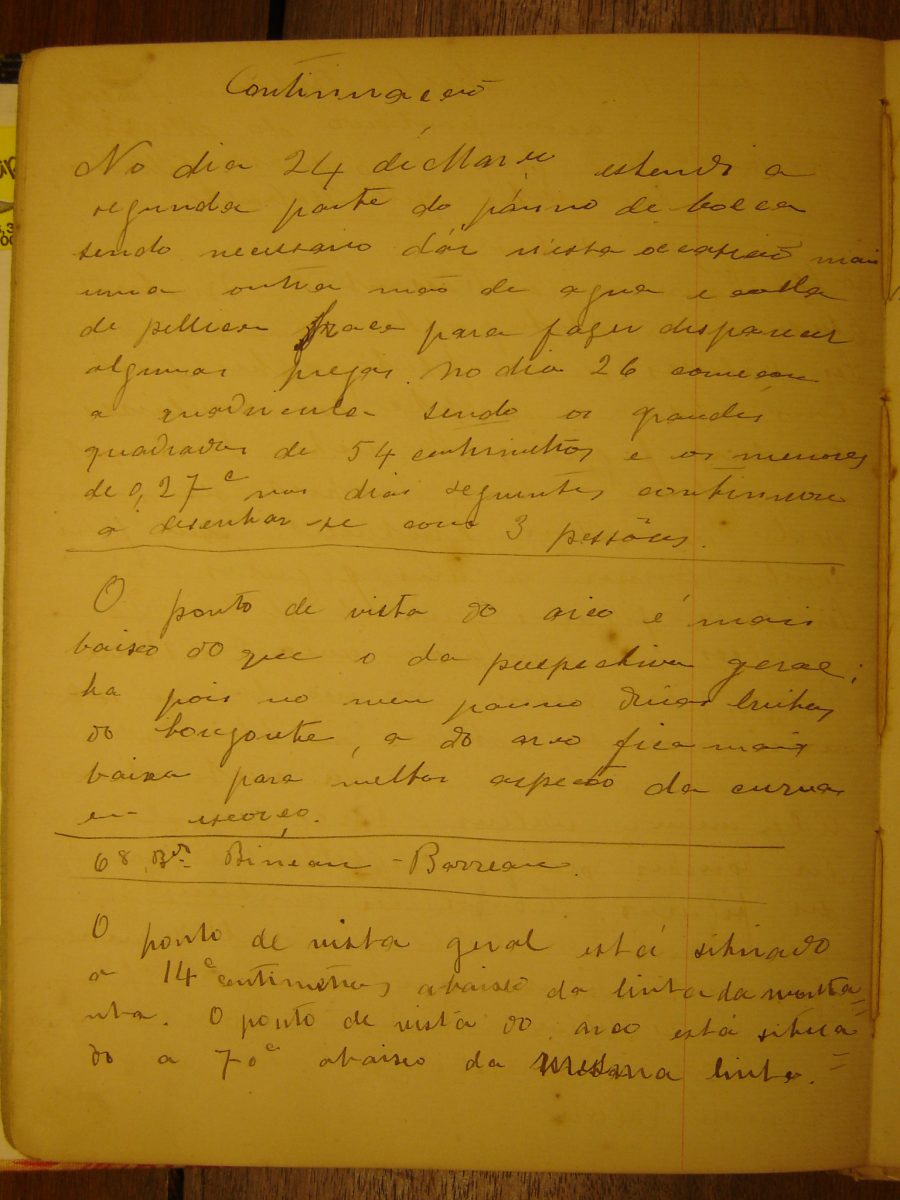 Continuação
No dia 24 de Março estendi a
segunda parte do panno de bocca
sendo necessario dár n'esta occasião mais
uma outra mão de agua e colla
de pellica fraca para fazer desparecer
algumas pregas. No dia 26 começou
a quadricula sendo os grandes
quadrados de 54 centimetros e os menores
de 0,27c nos dias seguintes continuou
a desenhar-se com 3 pessôas.
O ponto de vista do arco é mais
baixo do que o da perspectiva geral;
ha pois no meu panno duas linhas
do horizonte, a do arco fica mais
baixa para melhor aspecto da curva
em escorço.
68, Bd. Bineau - Barreau.
O ponto de vista geral está situado
a 14c centimetros abaixo da linha da monta
nha. O ponto de vista do arco está situa=
do a 70c abaixo da mesma linha.